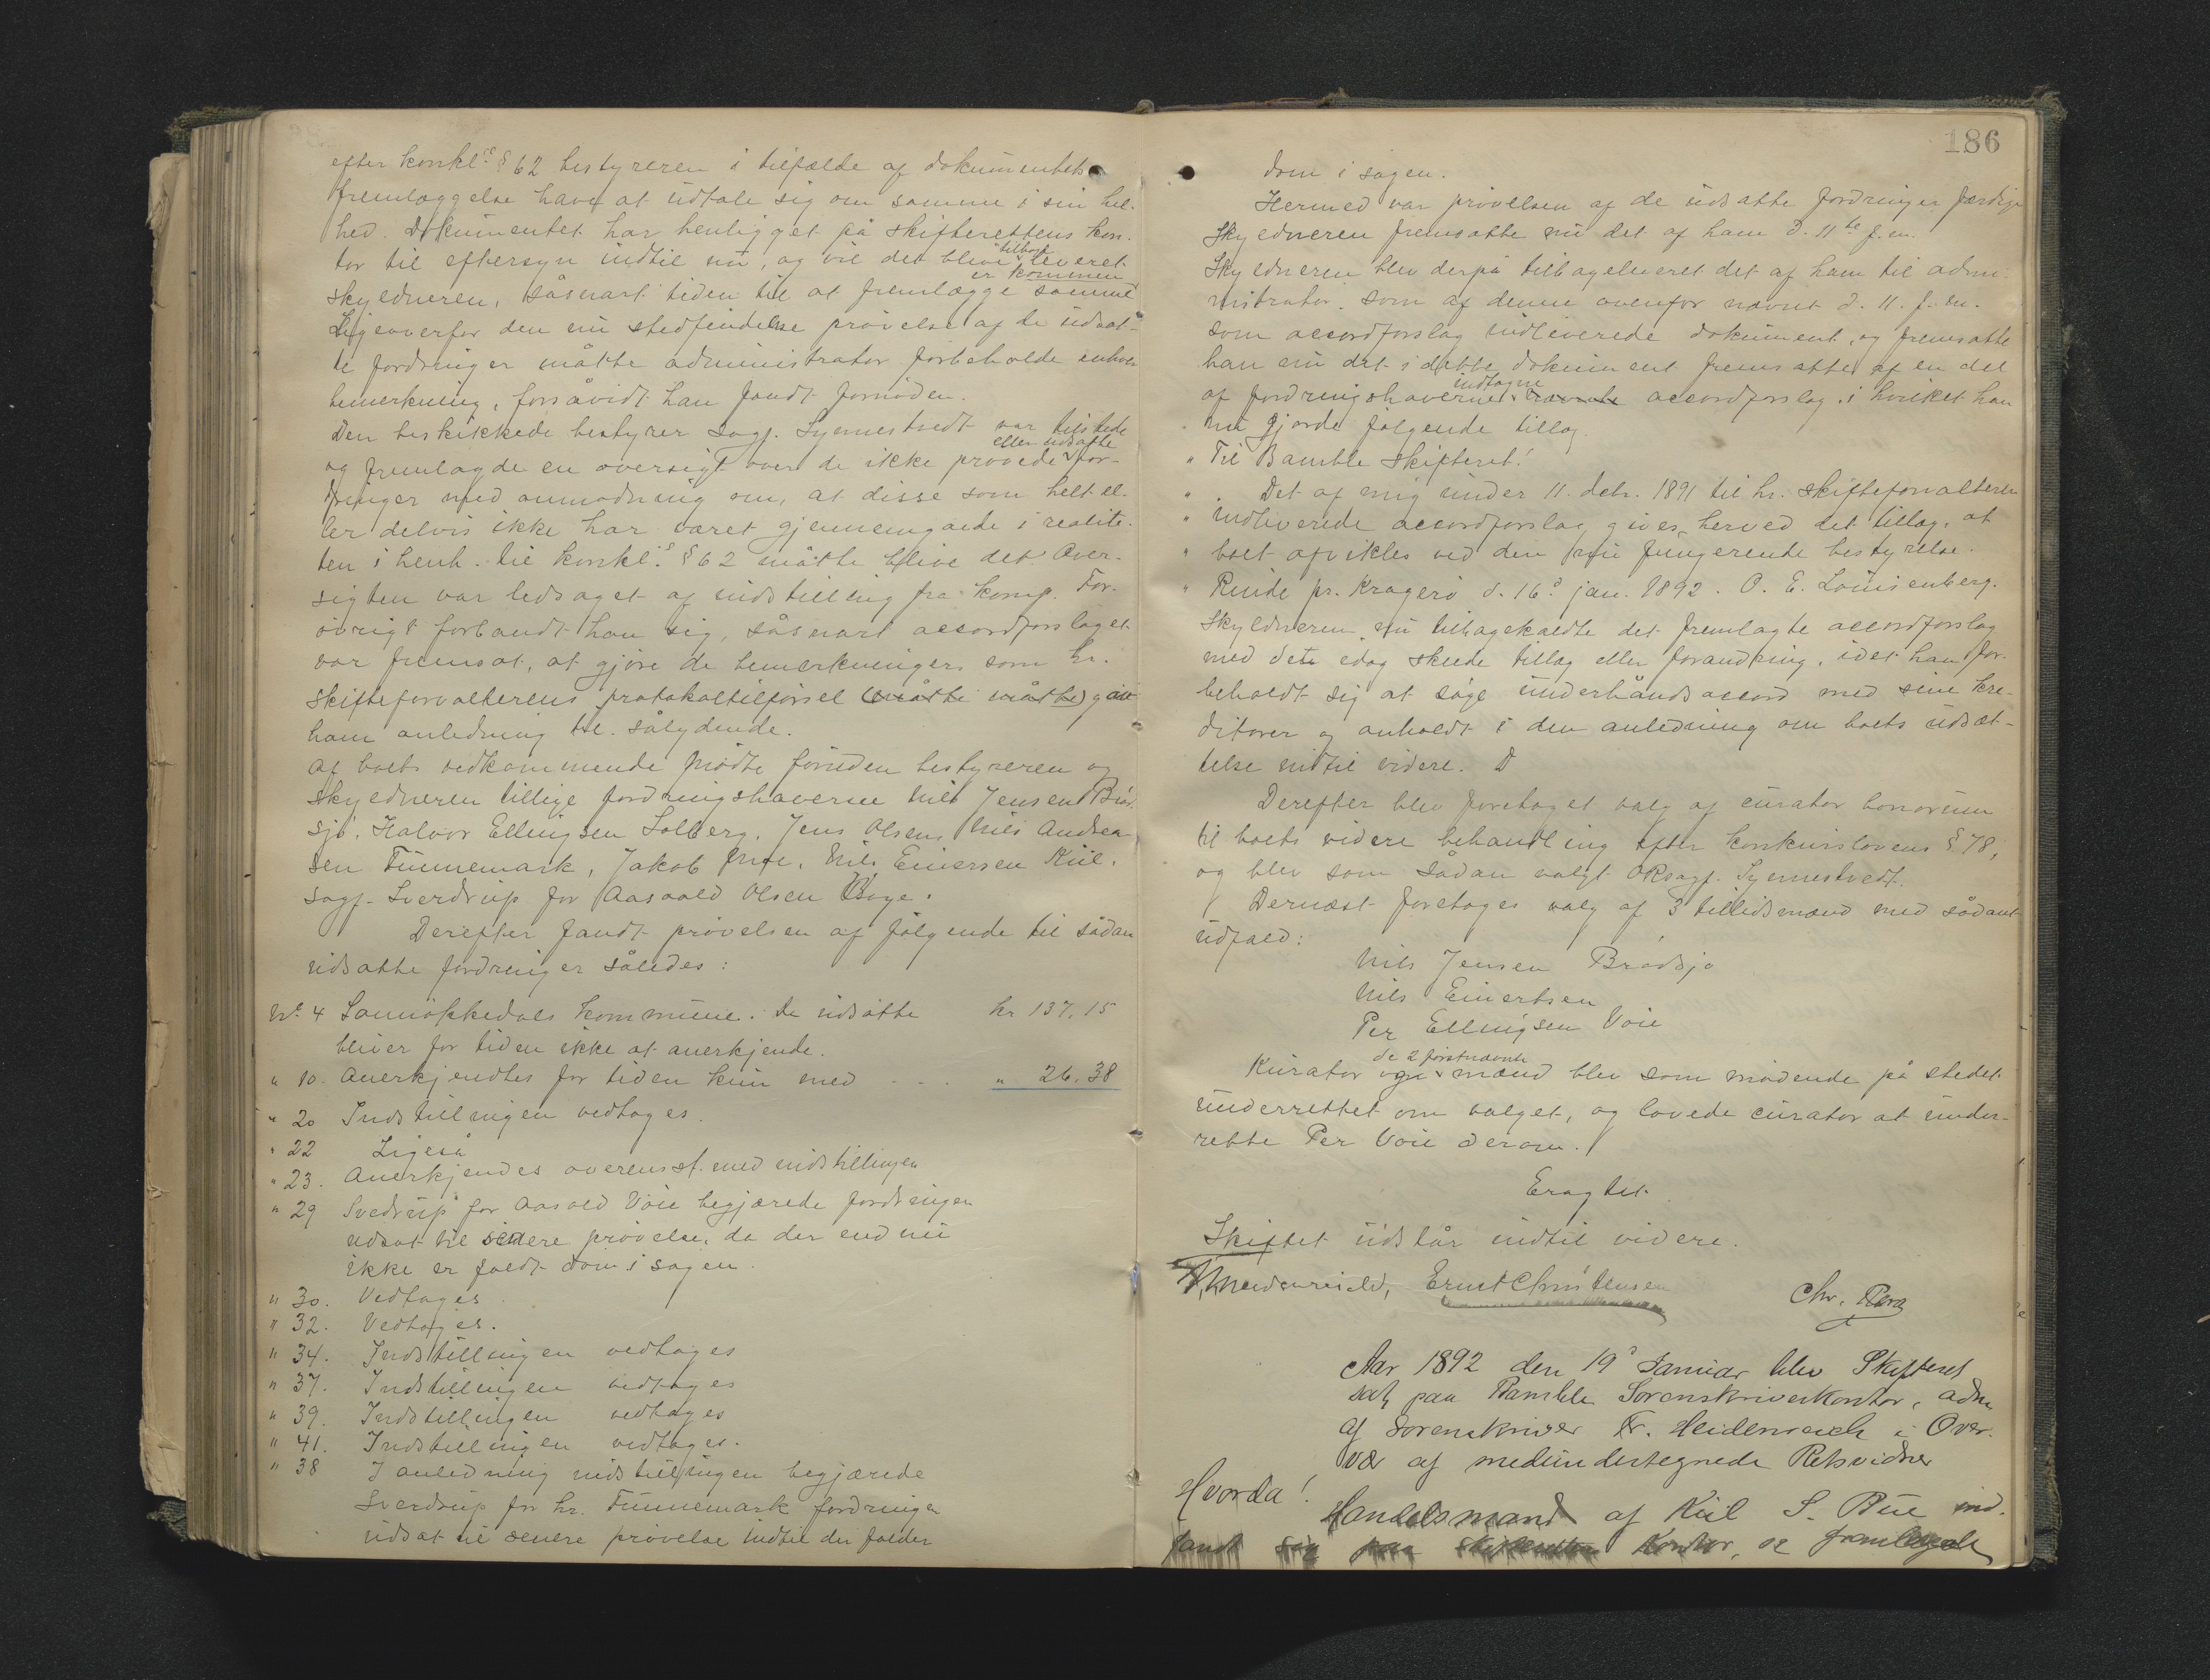 efter konkl. § 62 bestyreren i tilfælde af dokumentets
fremlæggelse have at udtale sig om samme i sin hel-
hed. Dokumentet har henligget på skifterettens kon-
tor til eftersyn indtil nu, og vil det blive tilbageleveret
skyldneren, såsnart tiden til at fremlægge samme er kommen
Ligeoverfor den nu stedfindende prøvelse af de udsat-
te fordringer måtte administrator forbeholde enhver
bemerkning, forsåvidt han fandt fornøden.
Den beskikkede bestyrer sagf. Syenestvedt var tilstede
og fremlagde en oversigt over de ikke prøvede eller udsatte for-
dringer med anmodning om, at disse som helt el-
ler delvis ikke har været gjennemgåede i realite-
ten i henh. til konkl. § 62 måtte blive det. Over-
sigten var ledsaget af indstilling fra komp. For-
øvrigt forbandt han sig, såsnart accordforslaget
var fremsat, at gjøre de bemerkninger som hr.
skifteforvalterens protokoltilførsel (måtte måtte) gav
ham anledning til. sålydende.
Af boets vedkommende mødte foruden bestyreren og
skyldneren tillige fordringshaverne Nils Jensen Brød-
sjø, Halvor Ellingsen Solberg, Jens Olsen, Nils Andrea-
sen Tinnemark, Jakob Nils Einersen Kiil.
sagf. Sverdrup for Aasvald Olsen
Derefter fandt prøvelsen af følgende til sådan
udsatte fordringer således:
No. 4 Sannøkkedals kommune. De udsatte kr 137.15
bliver for tiden ikke at anerkjende.
" 10. Anerkjendtes for tiden kun med - - . " 26.38
" 20 Indstillingen vedtages.
" 22 Ligeså
" 23. Anerkjendes overenst. med indstillingen
" 29 Svedrup for Aasold Voie begjærede fordringen
udsat til senere prøvelse, da der endnu
ikke er faldt dom i sagen.
" 30. Vedtages.
" 32. Vedtages.
" 34. Indstillingen vedtages
" 37. Indstillingen vedtages
" 39. Indstillingen vedtages
" 41. Indstillingen vedtages.
" 38 I anledning indstillingen begjærede
Sverdrup for hr. Tinnemark fordringen
udsat til senere prøvelse indtil der falder
186
dom i sagen.
Hermed var prøvelsen af de udsatte fordringer færdige
Skyldneren fremsatte nu det af ham d. 11te f. m.
Skyldneren blev derpå tilbageleveret det af ham til admi-
nistrator. som af denne ovenfor nævnt d. 11. f. m.
som accordforslag indleverede dokument, og fremsatte
han nu det i dette dokument fremsatte af en del
af fordringshaverne indtagne nævnte accordforslag. i hvilket han
nu gjorde følgende tillæg.
" Til Bamble skifteret!
" Det af mig under 11. decbr. 1891 til hr. skifteforvalteren
" indleverede accordforslag gives herved det tillæg, at
" boet afvikles ved den nu fungerende bestyrelse.
" Rinde pr. Kragerø d. 16. jan. 1892. O. E. Louisenberg.
Skyldneren nu tilbagekaldte det fremlagte accordforslag
med dets idag skede tillæg eller forandring, idet han for-
beholdt sig at søge underhåndsaccord med sine kre-
ditorer og anholdt i den anledning om boets udsæt-
telse indtil videre.
Derefter blev foretaget valg af curator bonorum
til boets videre behandling efter konkurslovens § 78,
og blev som sådan valgt ORsagf. Syenestvedt.
Dernæst foretages valg af 3 tillidsmænd med sådant
udfald:
Nils Jensen Brødsjø
Nils Einertsen
Per Ellingsen Voie
Kurator og de 2 førstnævnte mænd blev som mødende på stedet
underrettet om valget, og lovede curator at under-
rette Per Voie derom.
Eragtet
Skiftet udstår indtil videre.
Ernst Christensen Chr.
Aar 1892 den 19 Januar blev Skifteret
sat paa Bamble Sorenskriverkontor, adm
af Sorenskriver Fr. Heidenreich i Over-
vær af medundertegnede Retsvidner
Hvorda!
Handelsmand af Kiil S. ind-
fandt sig paa skifterettens Kontor, og fremlagde